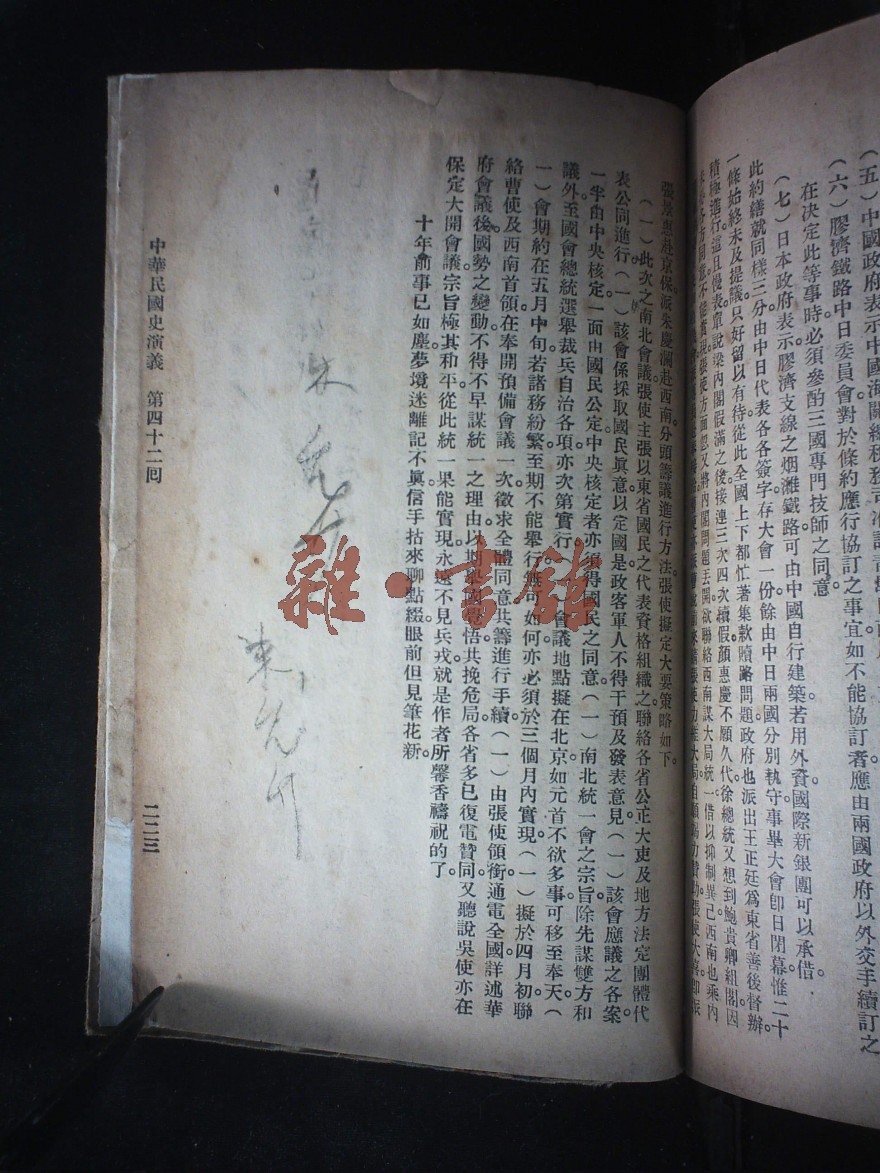 (五)中國政府表示中國海關總稅務司准許青島
(六)膠濟鐵路中日委員會對於條約應行協訂之事宜如不能協訂者應由兩國政府以外交手續訂之
在決定此等事時必須參酌三國專門技師之同意。
(七)日本政府表示膠濟支線之烟濰鐵路可由中國自行建築若用外資國際新銀團可以承借。
此約繕就同樣三分由中日代表各各簽字存大會一份。餘由中日兩國分別執守事畢大會卽日閉幕惟二十
一條始終未及提議只好留以有待從此全國上下都忙著集款贖路問題政府也派出王正廷爲東省善後督辦。
積極進行。這且慢表單說梁內閣假滿之後接連三次四次續假顏惠慶不願久代徐總統又想到鮑貴卿組閣因
各方同意不能實現張使方面忽又將內閣問題丟開欲聯絡西南謀大局統一借以抑制異己西南也乘內
張景惠赴京保派朱慶瀾赴西南分頭籌議進行方法張使擬定大要策略如下。
(一)此次之南北會議張使主張以東省國民之代表資格組織之聯絡各省公正大吏及地方法定團體代
表公同進行(一)該會係採取國民眞意以定國是政客軍人不得干預及發表意見(一)該會應議之各案
一半由中央核定一面由國民公定中央核定者亦須得國民之同意(一)南北統一會之宗旨除先謀雙方和
議外至國會總統選舉裁兵自治各項亦次第實行。會議地點擬在北京如元首不欲多事可移至奉天。(
一)會期約在五月中旬若諸務紛繁至期不能舉行無可如何亦必須於三個月內實現(一)擬於四月初聯
絡曹使及西南首領在奉開預備會議一次徵求全體同意共籌進行手續(一)由張使領銜通電全國詳述華
府會議後國勢之變動不得不早謀統一之理由以期舉國覺悟共挽危局。各省多已復電贊同又聽說吳使亦在
保定大開會議宗旨極其和平從此統一果能實現永遠不見兵戎就是作者所馨香禱祝的了。
十年前事已如塵夢境迷離記不眞信手拈來聊點綴眼前但見筆花新。
中華民國史演義 第四十二回
二二三
雜·書館